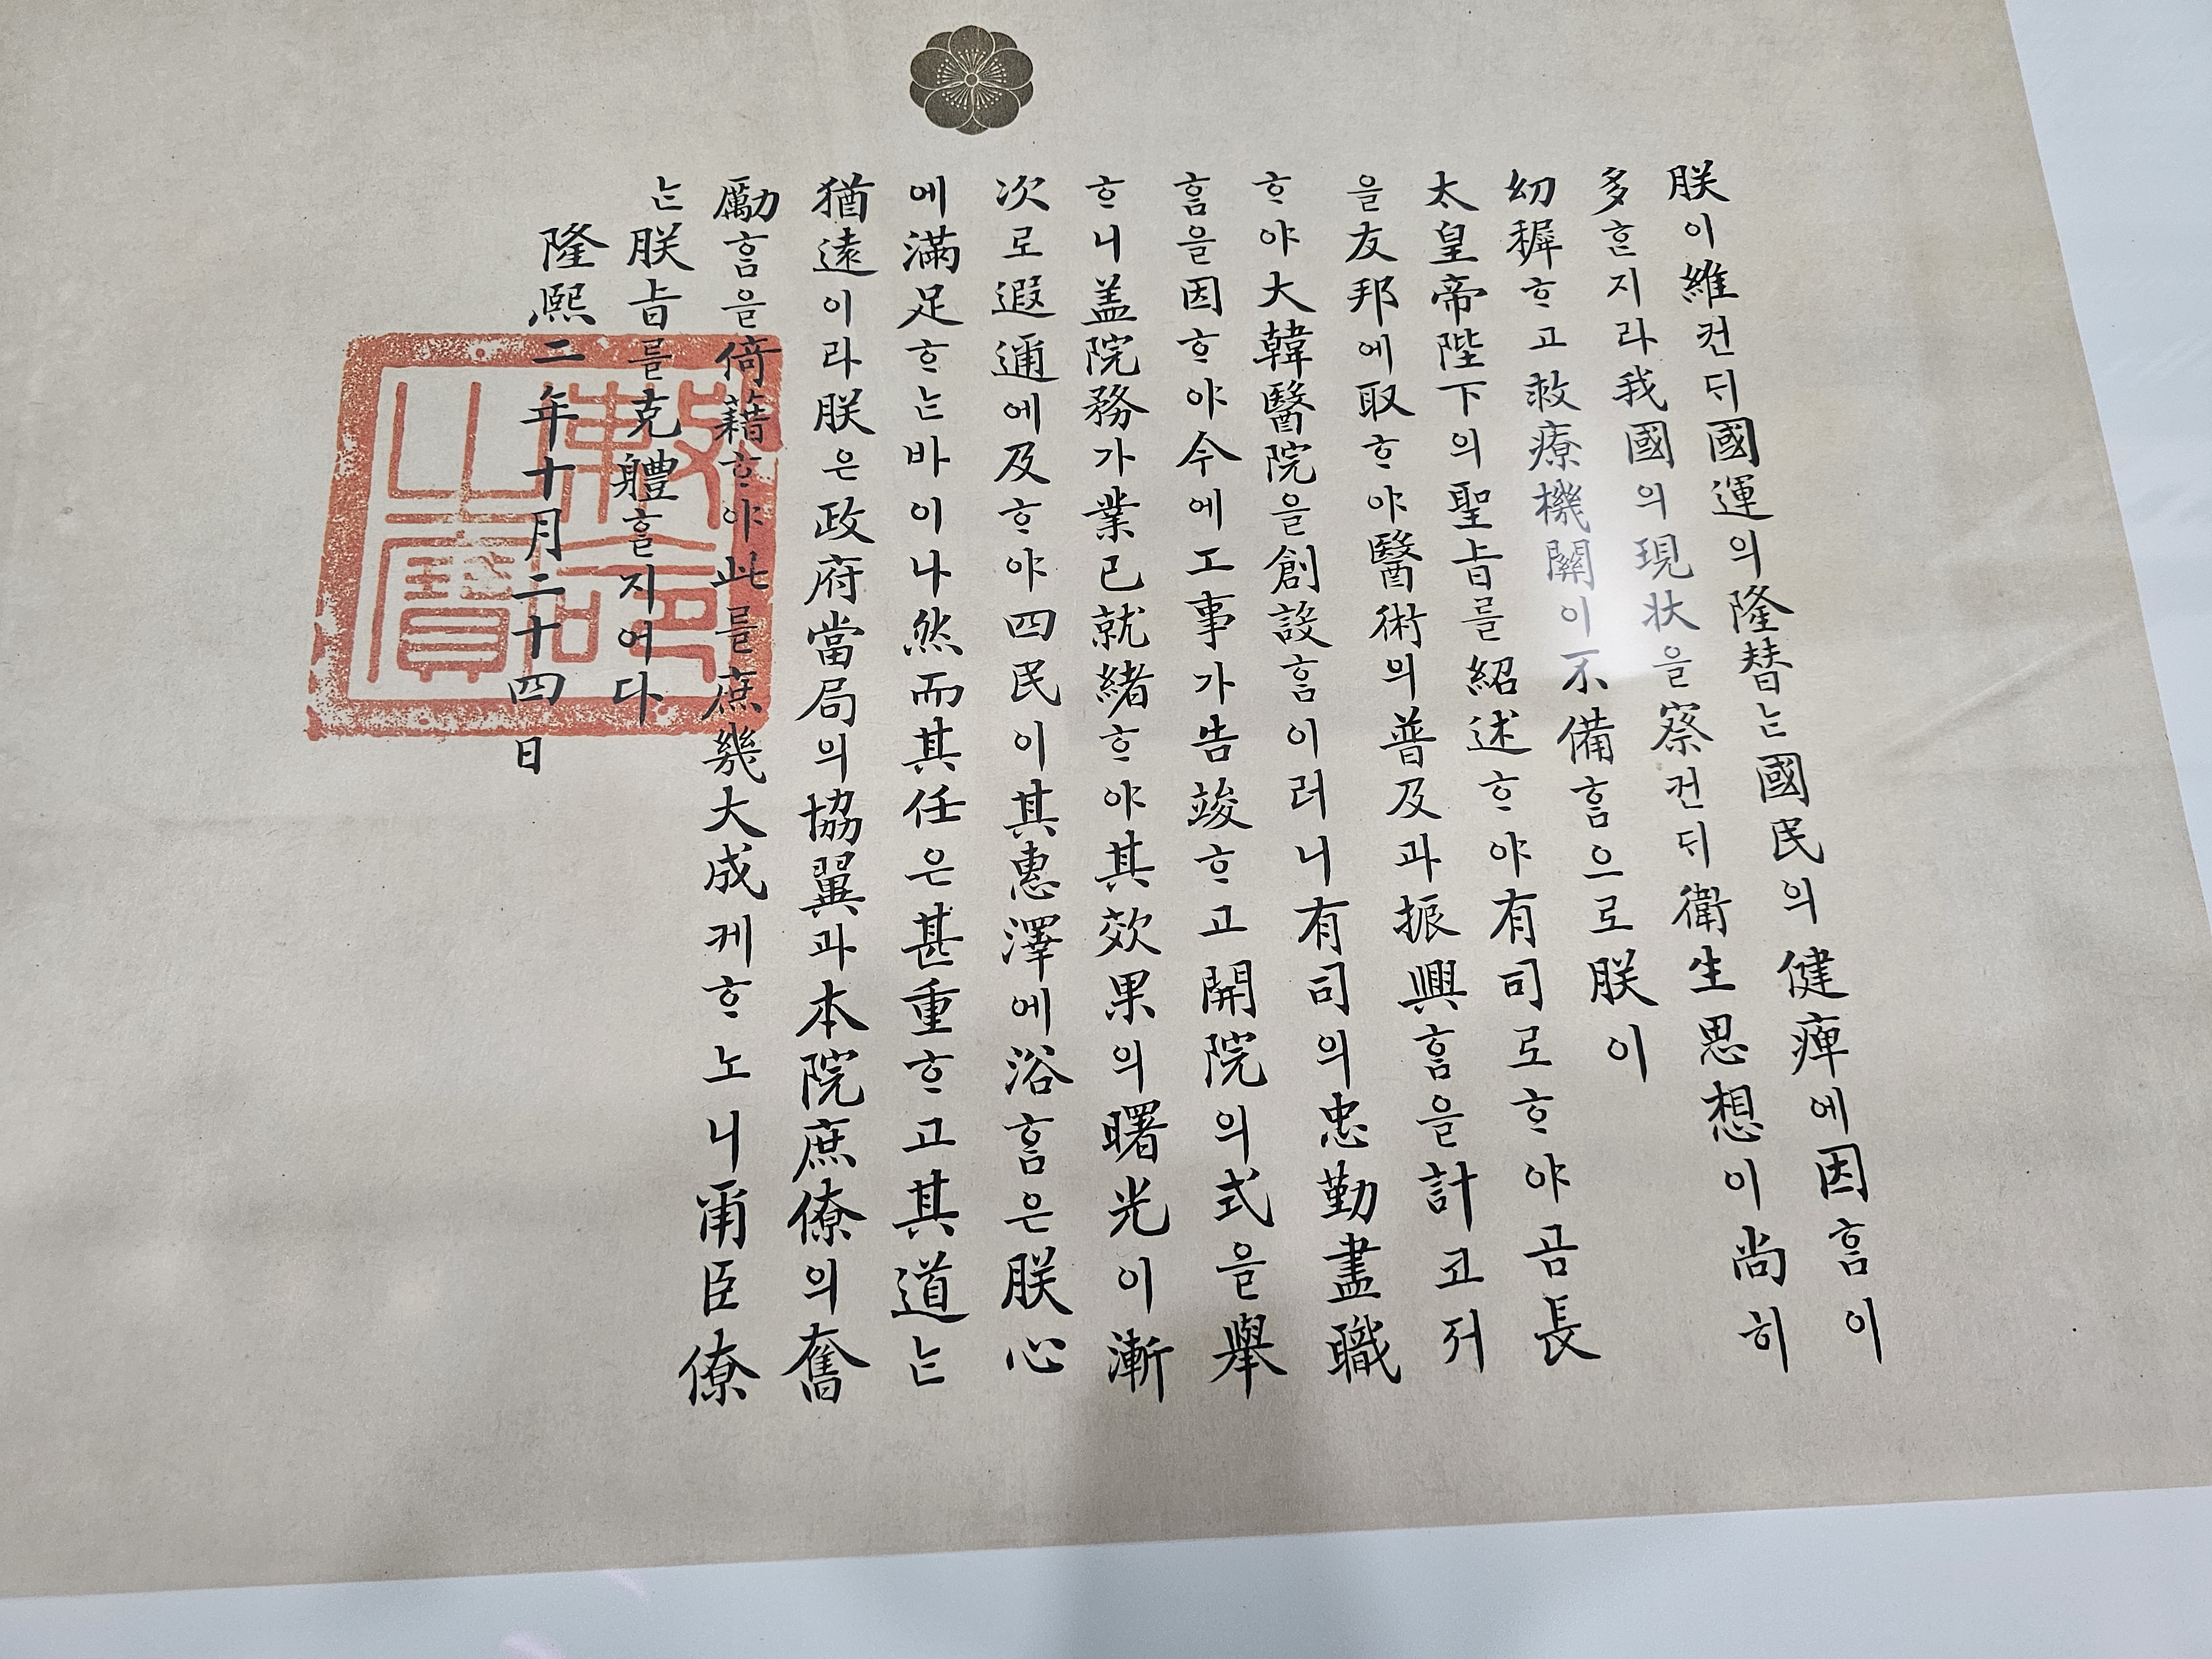 朕이維컨ᄃᆡ國運의隆替ᄂᆞᆫ國民의健痺에因ᄒᆞᆷ이
多ᄒᆞᆫ지라我國의現狀을察컨ᄃᆡ衛生思想이尙히
幼穉ᄒᆞ고救療機關이不備ᄒᆞᆷ으로朕이
太皇帝陛下의聖旨를紹述ᄒᆞ야有司로ᄒᆞ야곰長
을友邦에取ᄒᆞ야醫術의普及과振興ᄒᆞᆷ을計코져
ᄒᆞ야大韓醫院을創設ᄒᆞᆷ이러니有司의忠勤盡職
ᄒᆞᆷ을因ᄒᆞ야今에工事가告竣ᄒᆞ고開院의式을擧
ᄒᆞ니盖院務가業已就緖ᄒᆞ야其效果의曙光이漸
次로遐邇에及ᄒᆞ야四民이其惠澤에浴ᄒᆞᆷ은朕心
에滿足ᄒᆞᄂᆞᆫ바이나然而其任은甚重ᄒᆞ고其道ᄂᆞᆫ
猶遠이라朕은政府當局의協翼과本院庶僚의奮
勵ᄒᆞᆷ을倚藉ᄒᆞ야此를庶幾大成케ᄒᆞ노니爾臣僚
ᄂᆞᆫ朕旨를克軆ᄒᆞᆯ지어다
隆熙二年十月二十四日
勅命之寶